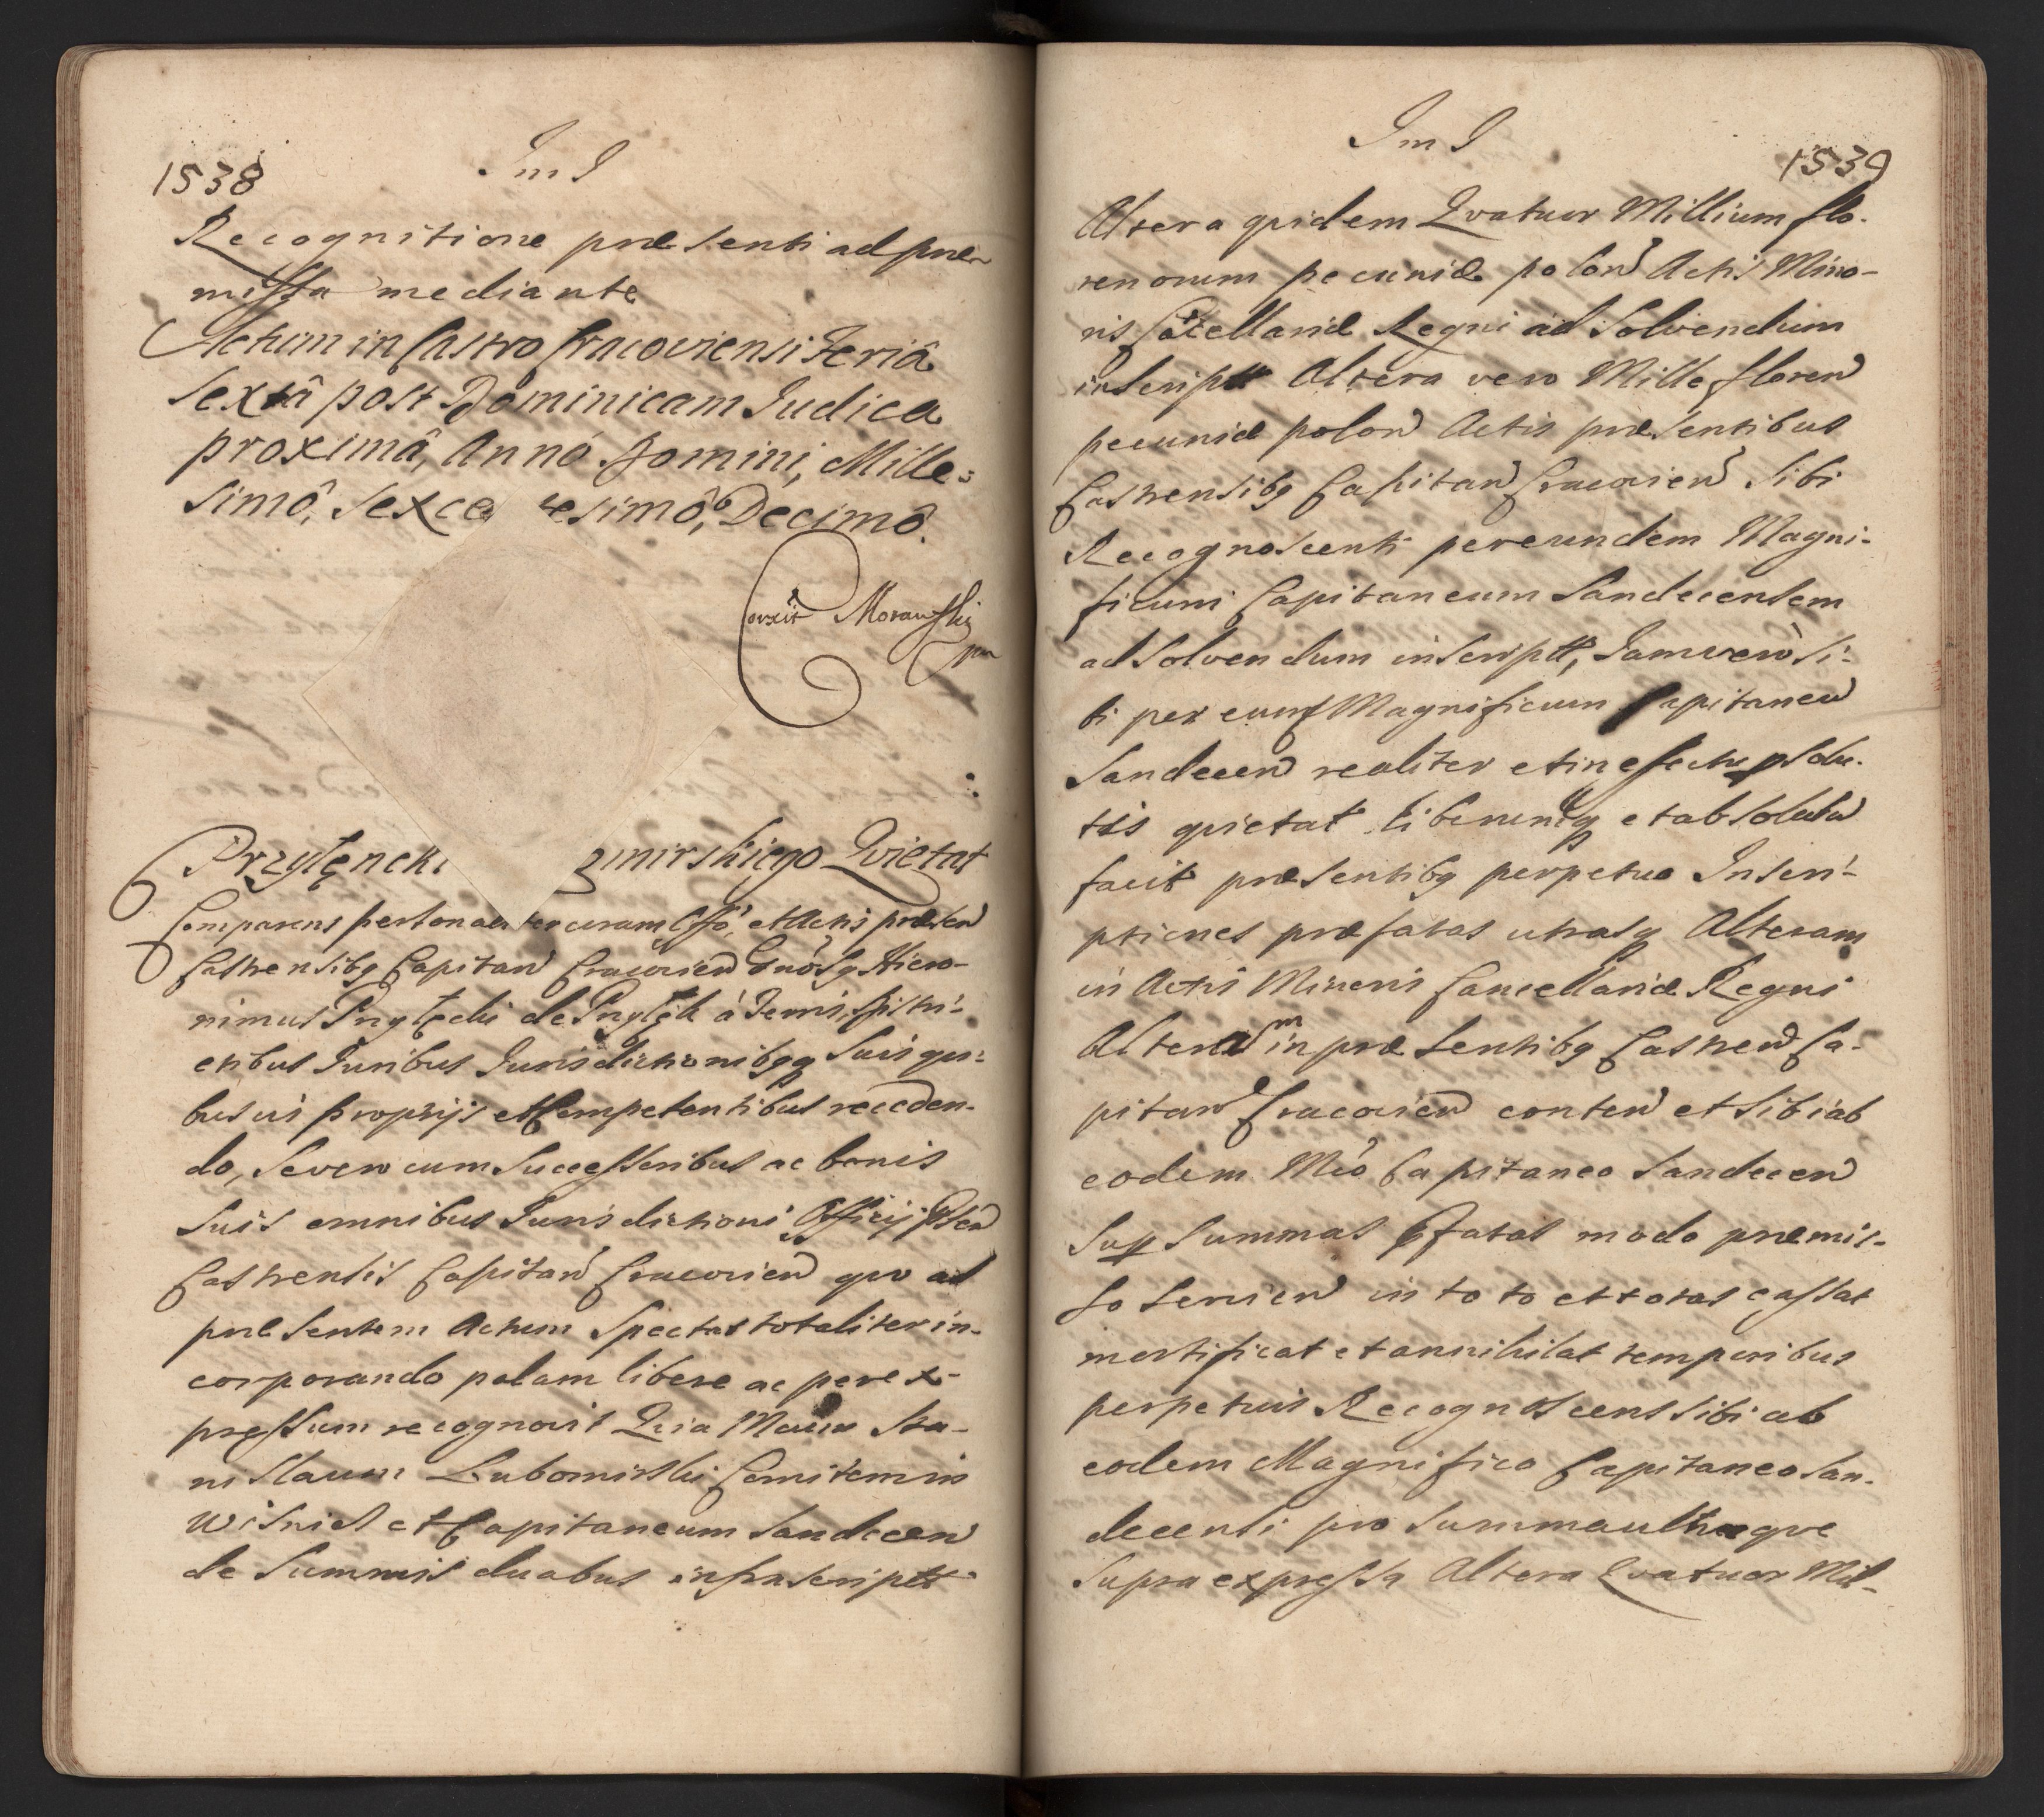 1538
Im I
Recognitione præsenti ad præ-
missa mediante
Actum in Castro Cracoviensi Feriâ
Sextâ post Dominicam Iudica
proximâ, Annô Domini, Mille:
simô, Sexce tesimô, Decimô.
Corrxit Morawski
mp
Przyłęcki zmirskiego Quietat
Comparens personali ter coram Offô, et Actis præsen
Castrensibq Capitan Cracovien Gnôsq Hiero-
nimus Przyłęcki de Przyłęk â Terris, Distri-
ctibus Iuribus Iurisdictionibqq Suis qui-
bus vis proprijs et Competentibus receden-
do, Se vero cum Successoribus ac bonis
Suis omnibus Iurisdictioni Officij Psen
Castrensis Capitan Cracovien quo ad
præsentem Actum Spectat totaliter in-
corporando palam libere ac per ex-
pressum recognovit Quia Mcum Sta-
nislaum Lubomirski Comitem in
Wisnicz et Capitaneum Sandecen
de Summis duabus infrascriptt
Im I
1539
Altera quidem Quatuor Millium flo-
renorum pecuniæ polon Actis Mino-
ris Cacellariæ Regni ad Solvendum
inscriptt Altera vero Mille floren
pecuniæ polon Actis præsentibus
Castrensibq Capitan Cracovien Sibi
Recognoscenti per eundem Magni-
ficum Capitaneum Sandecensem
ad Solvendum inscriptt, Iamvero Si-
bi per eund Magnificum Capitaneu
Sandecen realiter et in effectu psolu-
tis quietat liberumq et absolutu
facit præsentibq perpetuo Inscri-
ptiones præfatas utrasq Alteram
in Actis Minoris Cancellariæ Regni
Alteram in præsentibq Castren Ca-
pitan Cracovien conten et Sibi ab
eodem Mco Capitaneo Sandecen
Sup Summas pfatas modo præmis-
so Servien in toto et totas cassat
mortificat et annihilat temporibus
perpetuis Recognoscens Sibi ab
eodem Magnifico Capitaneo San-
decensi pro Summa utraque
Supra expressa Altera Quatuor Mil-